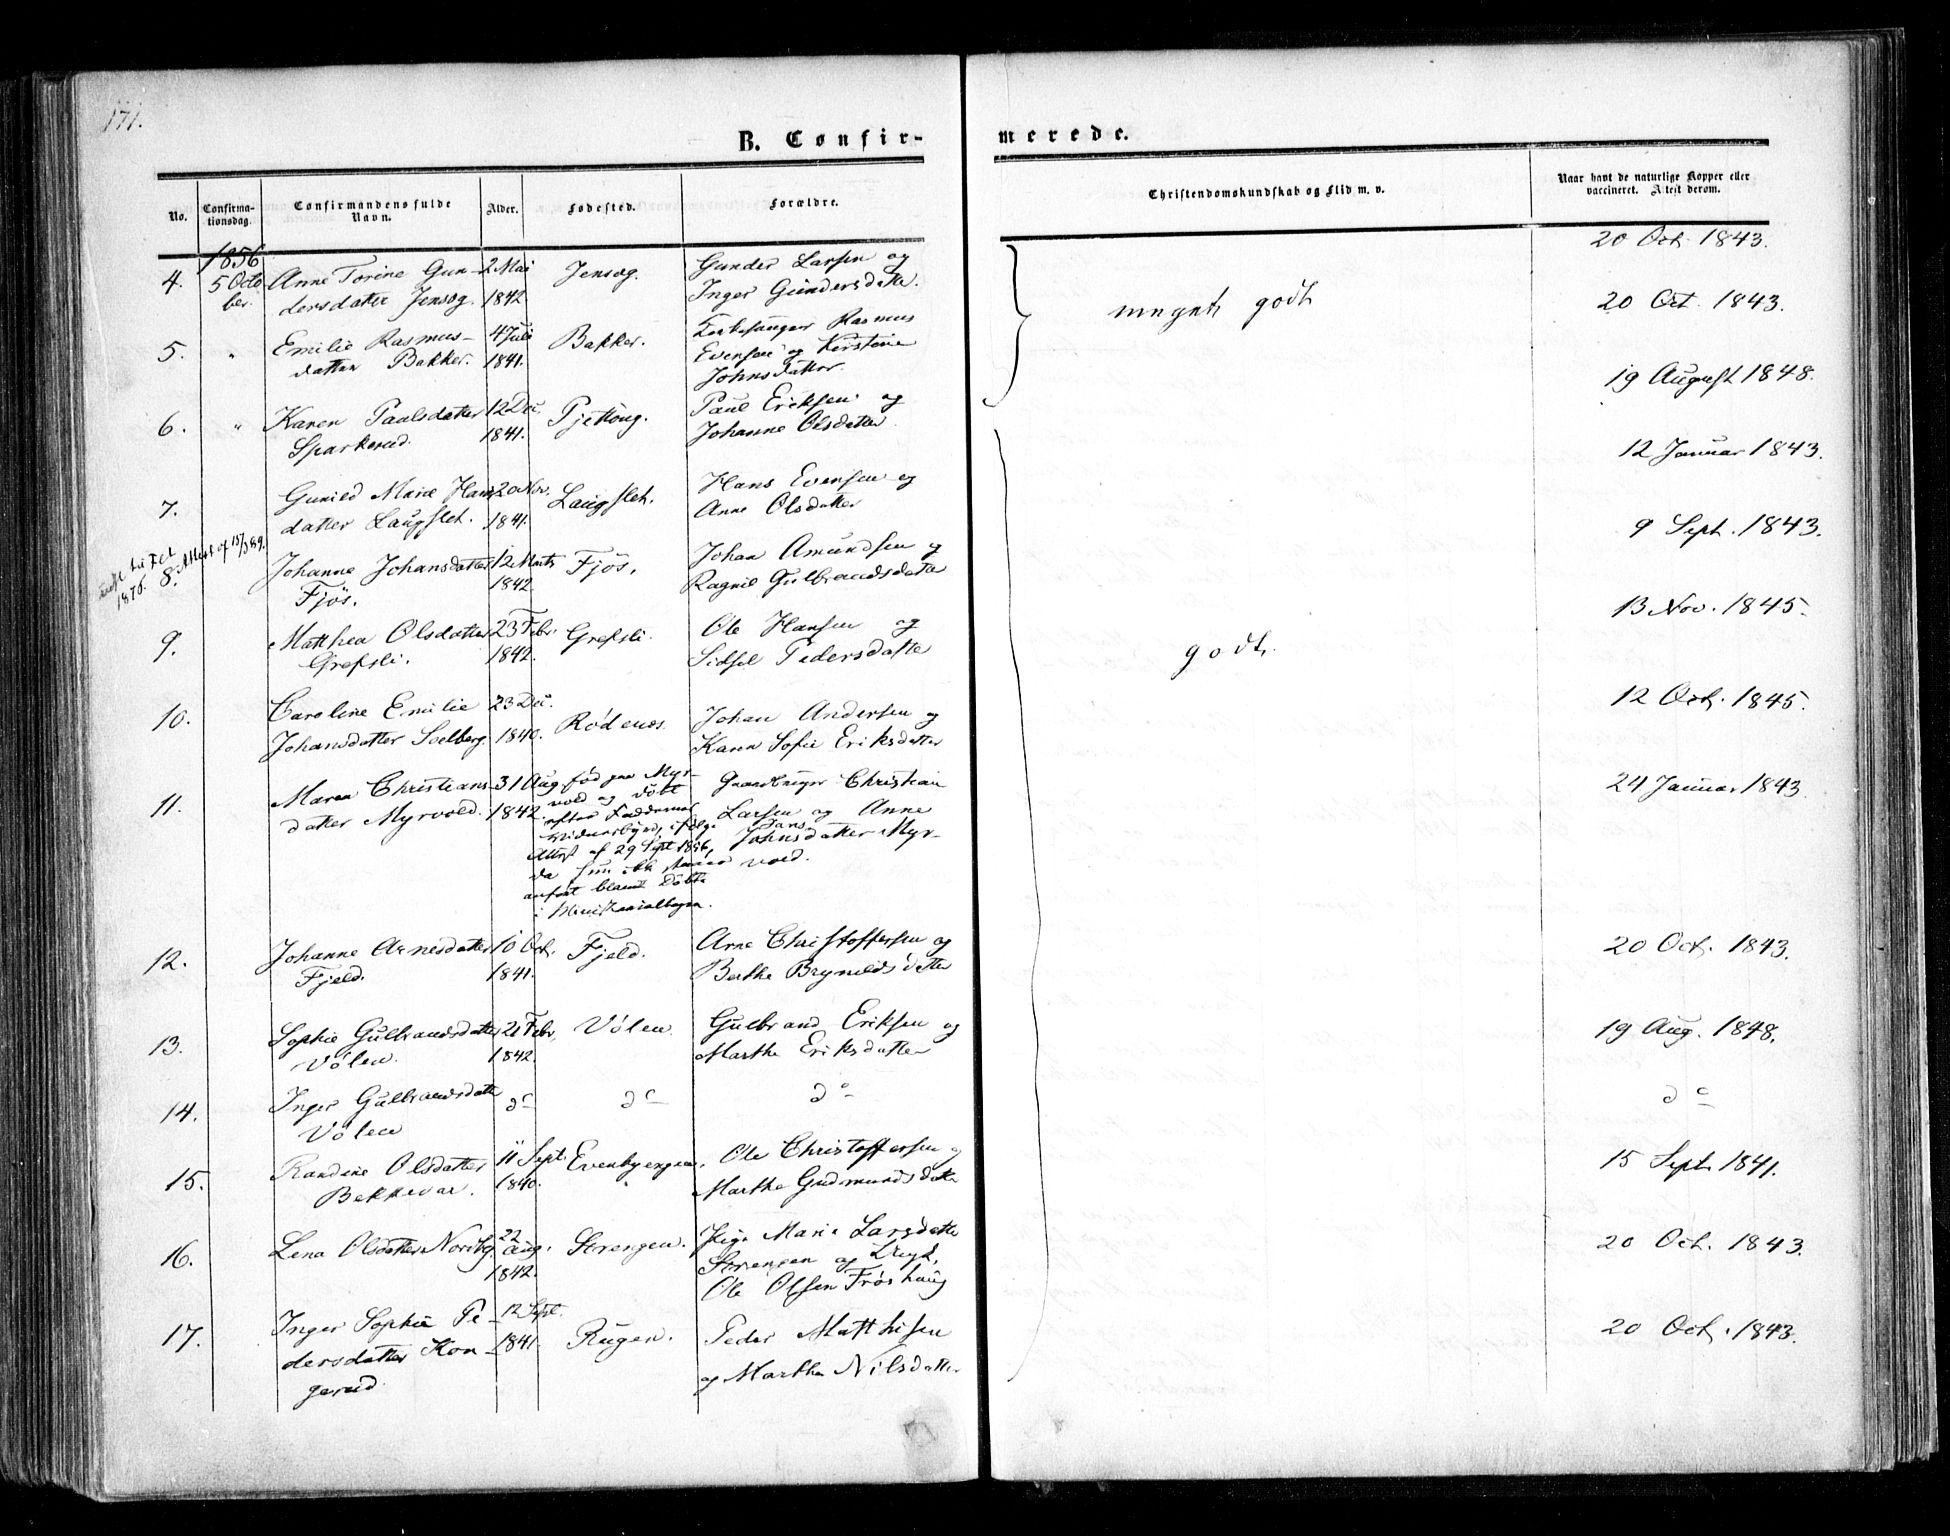 171.
B. Confir-
merede.
No.
Confirma-
tionsdag.
Confirmandens fulde
Navn.
Alder.
Fødested.
Forældre.
Christendomskundskab og Flid m. v.
Naar havt de naturlige Kopper eller
vaccineret. Attest derom.
1856
4. 5 Octo Anne Torine Gun- 2 Mai Jensøg. Gunder Larsen og 20 Oct. 1843.
ber. dersdatter Jensøg. 1842. Inger Gundersdatter.
meget godt
5. " Emilie Rasmus- 4 Juli Bakker. Kirkesanger Rasmus 20 Oct. 1843.
datter Bakker. 1841. Evensen og Kirstine
Johnsdatter.
6. " Karen Paalsdatter 12 Dec. Paul Eriksen og 19 August 1848.
Sparkerud. 1841. Johanne Olsdatter.
7. Gunild Marie Hans 20 Nov. Laugslet. Hans Evensen og 12 Januar 1843.
datter Laugslet. 1841. Anne Olsdatter
til Fet
1876. Attest af 15/3 89.
8. Johanne Johansdatter 12 Marts Fjös. Johan Amundsen og 9 Sept. 1843.
Fjös. 1842. Ragnil Gulbrandsdatter
9. Matthea Olsdatter 23 Febr. Grefsli. Ole Hansen og 13 Nov. 1845.
Grefsli. 1842. Sidsel Pedersdatter
godt.
10. Caroline Emilie 23 Dec. Rødenes. Johan Andersen og 12 Oct. 1845.
Johansdatter Soelberg. 1840. Karen Sofie Eriksdatter
11. Maren Christians- 31 Aug. født paa Myr- Gaardbruger Christian 24 Januar 1843.
datter Myrvold. 1842. vold og döbt Larsen og Anne
efter Faddernes
Vidnesbyrd, ifølge Johnsdatter Myr-
Attest af 29 Sept 1856, vold.
da hun ikke
anført blandt Döbte
i Ministerialbogen.
12. Johanne Arnesdatter 10 Oct. Fjeld. Arne Christoffersen og 20 Oct. 1843.
Fjeld. 1841. Berthe Brynildsdatter
13. Sophie Gulbrandsdatter 21 Febr. Völen. Gulbrand Eriksen og 19 Aug. 1848.
Völen. 1842. Marthe Eriksdatter
14. Inger Gulbrandsdatter do do do do
Völen
15. Randine Olsdatter 11 Sept. Evenbyengen. Ole Christoffersen og 15 Sept 1841.
Bekkevar. 1840. Marthe Gudmundsdatter
16. Lena Olsdatter Nordbg. 22 Aug. Strengen. Pige Marie Larsdatter 20 Oct. 1843.
1842. Strengen og Ungk.
Ole Olsen Frøshaug
17. Inger Sophie Pe- 12 Sept. Rugen. Peder Matthisen 20 Oct. 1843.
dersdatter Kon- 1841. og Marthe Nilsdatter
gerud.